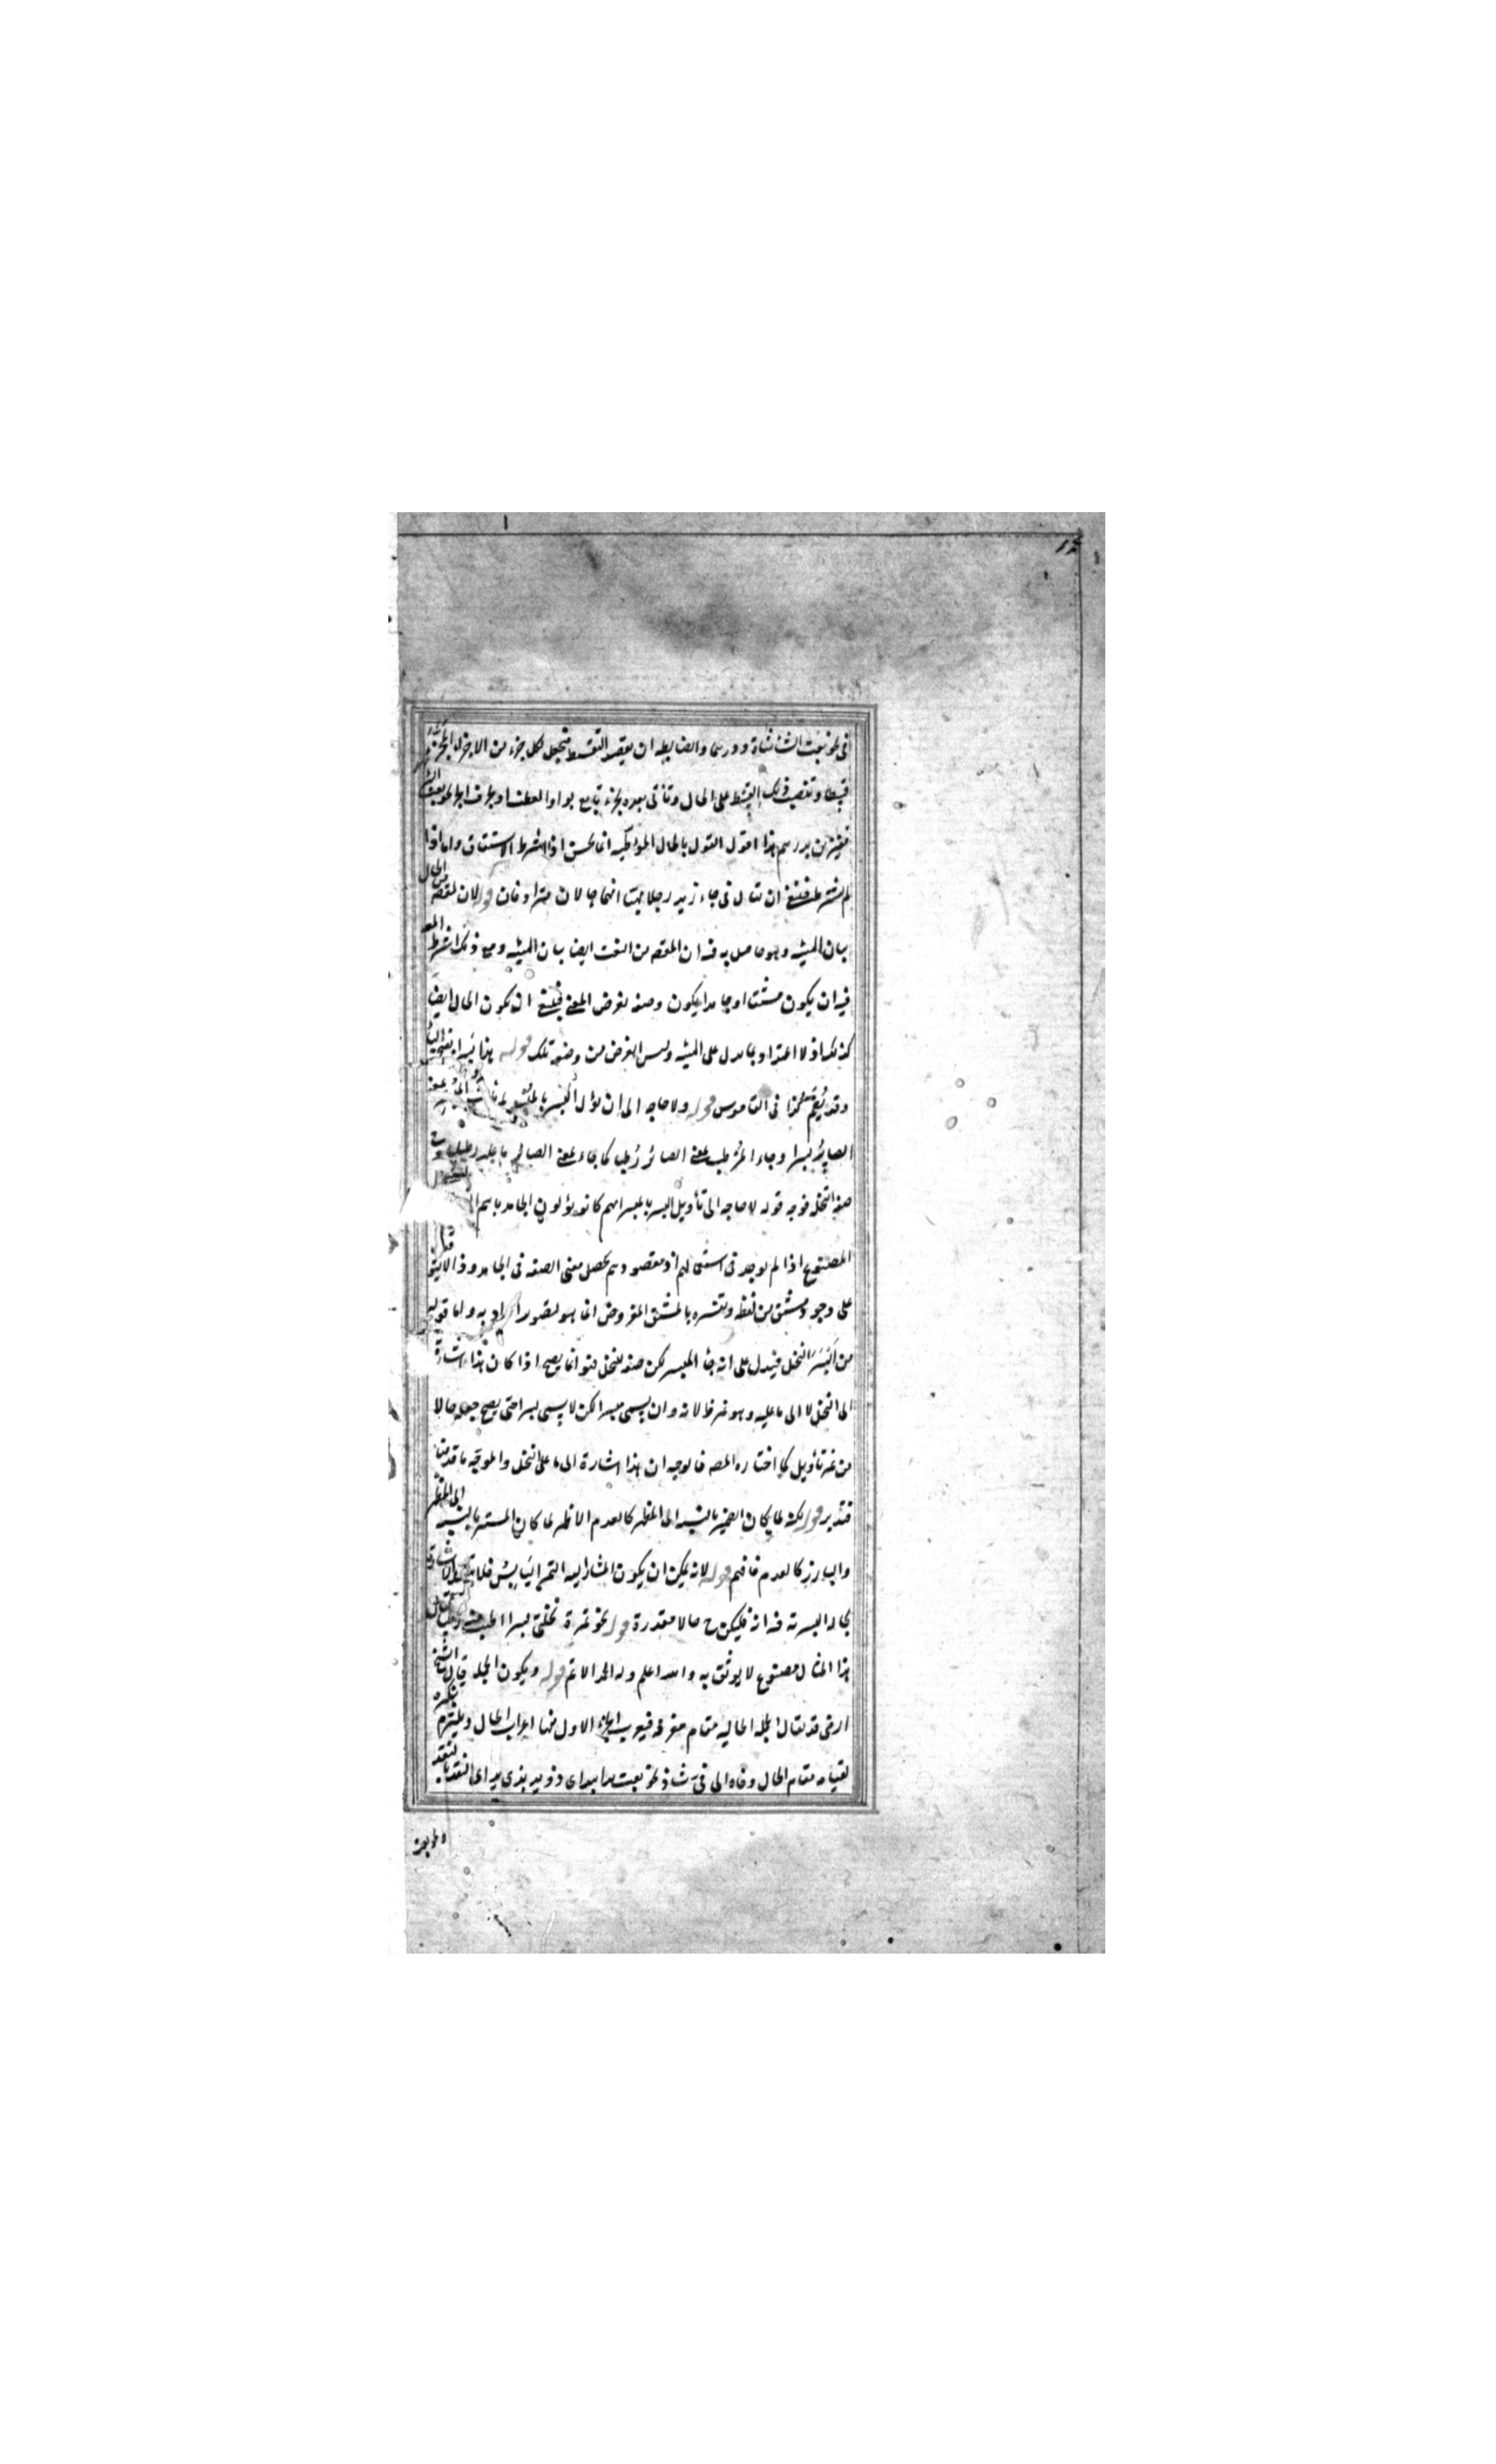 فى نحو بعت الشاء شاة ودرهما والضابطه ان يقصد التقسيط فيجعل لكل جزء من الاجزاء
قسطا وتنصب ذلك القسط على الحال وتأتى بعده بجزء تابع بواو العطف او بحرف الجر نحو بعت
قفيزين بدرهم هذا اقول القول بالحال الموطئه انما يحسن اذا اشترط الاشتقاق واما اذا
لم يشترط فينبغى ان يقال فى جاء زيد رجلا انهما حالان مترادفان قوله لان المقصه من الحال
بيان الهيئه وهو حاصل به فيه ان المقصه من النعت ايضا بيان الهيئه ومع ذلك اشترط
فيه ان يكون مشتقا او جامدا يكون وصفه لغرض المعنى فينبغى ان يكون الحال ايضا
كذلك اذ لا اعتداد بما يدل على الهيئه وليس الغرض من وضعه تلك قوله هذا بسرا
وقد يضم كذا فى القاموس قوله ولا حاجه الى ان يؤل البسر بالمبسر
الصاير بسرا وجاء المرطب بمعنى الصائر رطبا كما جاء بمعنى الصائر ما عليه رطبا
صفه النخله فوجه قوله لا حاجه الى تأويل البسر بالمبسر انهم كانوا يؤولون الجامد باسم
المصنوع اذا لم يوجد فى استعمالهم اذ مقصودهم تحصيل معنى الصفه فى الجامد وذا لا يتوقف
على وجود مشتق من لفظه وتفسره بالمشتق المفروض انما هو تصوير المراد به واما قوله
من اَبْسَرَ النخل فيدل على انه جأ المبسر لكن صفه للنخل فهو انما يصح اذا كان هذا اشارة
الى النخل لا الى ما عليه وهو غير ظ لانه وان يسمى مبسرا لكن لا يسمى بسرا حتى يصح جعله حالا
من غير تأويل كما اختاره المصه فالوجه ان هذا اشارة الى ما على النخل والموجه ما قدمنا
فتدبر قوله لكنه لما كان الضمير بالنسبه الى المظهر كالعدم الاظهر لما كان المستتر بالنسبه الى المظهر
والبارز كالعدم فافهم قوله لانه يمكن ان يكون المشار اليه التمر اليابس فلا
بحاله البسريه فيه انه فليكن ح حالا مقدرة قوله نحو تمرة نخلتى بسرا اطيب منه رطبا
هذا المثال مصنوع لا يوثق به والله اعلم وله الحمد الاتم قوله ويكون الجمله قال الشيخ
الرضى قد يقام الجمله الحاليه مقام مفرد فيعرب الجزء الاول منها اعراب الحال ويلتزم
لقيامه مقام الحال وفاه الى فىّ شاذ نحو بعت يدا بيد اى ذو يد بذى يد اى النقد بالنقد
ونحو بعت